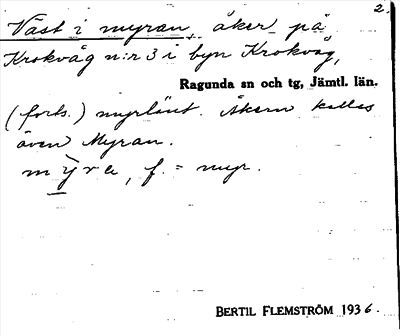 2.
Väst i myran, åker på
Krokvåg n:r 3 i byn Krokvåg,
Ragunda sn och tg, Jämtl. län.
(forts.) myrlänt. Åkern kallas
även Myran.
mỳra, f. = myr.
BERTIL FLEMSTRÖM 1936.